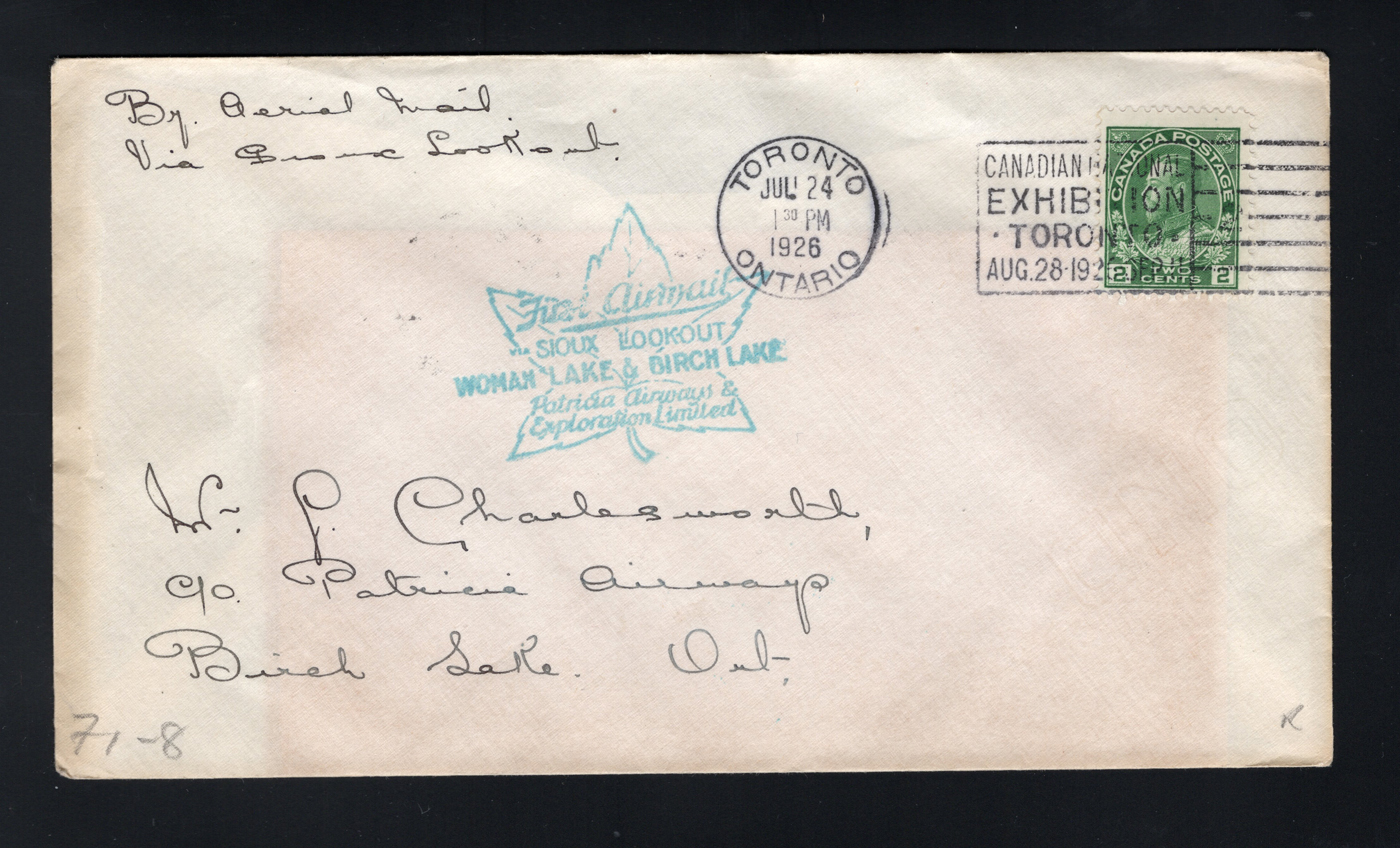 By. Aerial Mail.
Via Sioux Lookout.
TORONTO
JUL 24
1 30 PM
1926
ONTARIO
CANADIAN NATIONAL
EXHIBITION
· TORONTO ·
AUG.28·192
CANADA POSTAGE
2 TWO CENTS 2
First Airmail
VIA SIOUX LOOKOUT
WOMAN LAKE & BIRCH LAKE
Patricia Airways &
Exploration Limited
Mr. G. Charlesworth,
c/o. Patricia Airways
Birch Lake. Ont,
71-8
R